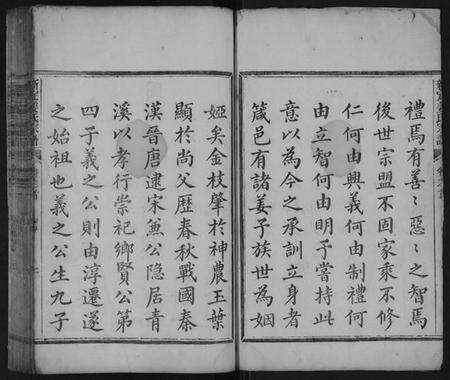 禮焉有善〻惡〻之智焉
後世宗盟不固家乘不修
仁何由興義何由制禮何
由立智何由明子嘗持此
意以為今之承訓立身者
箴邑有諸姜子族世為姻
婭矣金枝肇於神農玉葉
顯於尚父歷春秋戰國秦
漢晉唐逮宋𠔥公隐居青
溪以孝行崇祀鄉賢公第
四子義之公則由淳遷遂
之始祖也義之公生九子